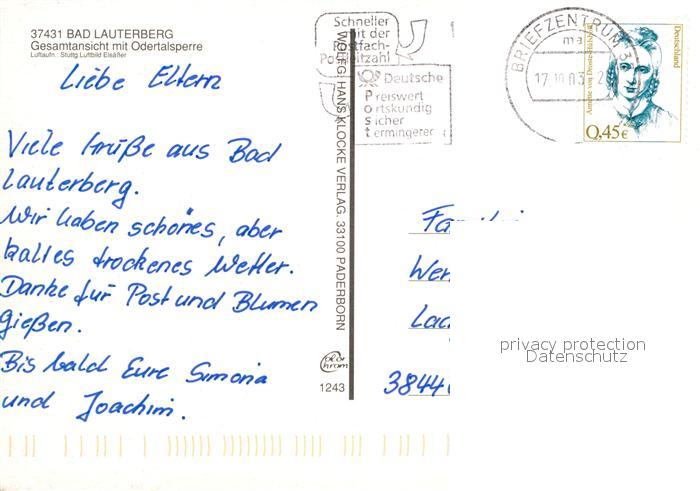 37431 BAD LAUTERBERG
Gesamtansicht mit Odertalsperre
Luftaufn.: Stuttg. Luftbild Elsäßer
Liebe Eltern
Viele Grüße aus Bad
Lauterberg.
Wir haben schönes, aber
kaltes trockenes Wetter.
Danke für Post und Blumen
gießen.
Bis bald Eure Simona
und Joachim.
VOLLEG HANS KLOCKE VERLAG, 33100 PADERBORN
1243
Schneller
mit der
Postfach-
Postleitzahl
Deutsche
Preiswert
ortskundig
sicher
termingerecht
BRIEFZENTRUM 3
17.10.03
Deutschland
0,45€
Wer
Lac
3844
privacy protection
Datenschutz